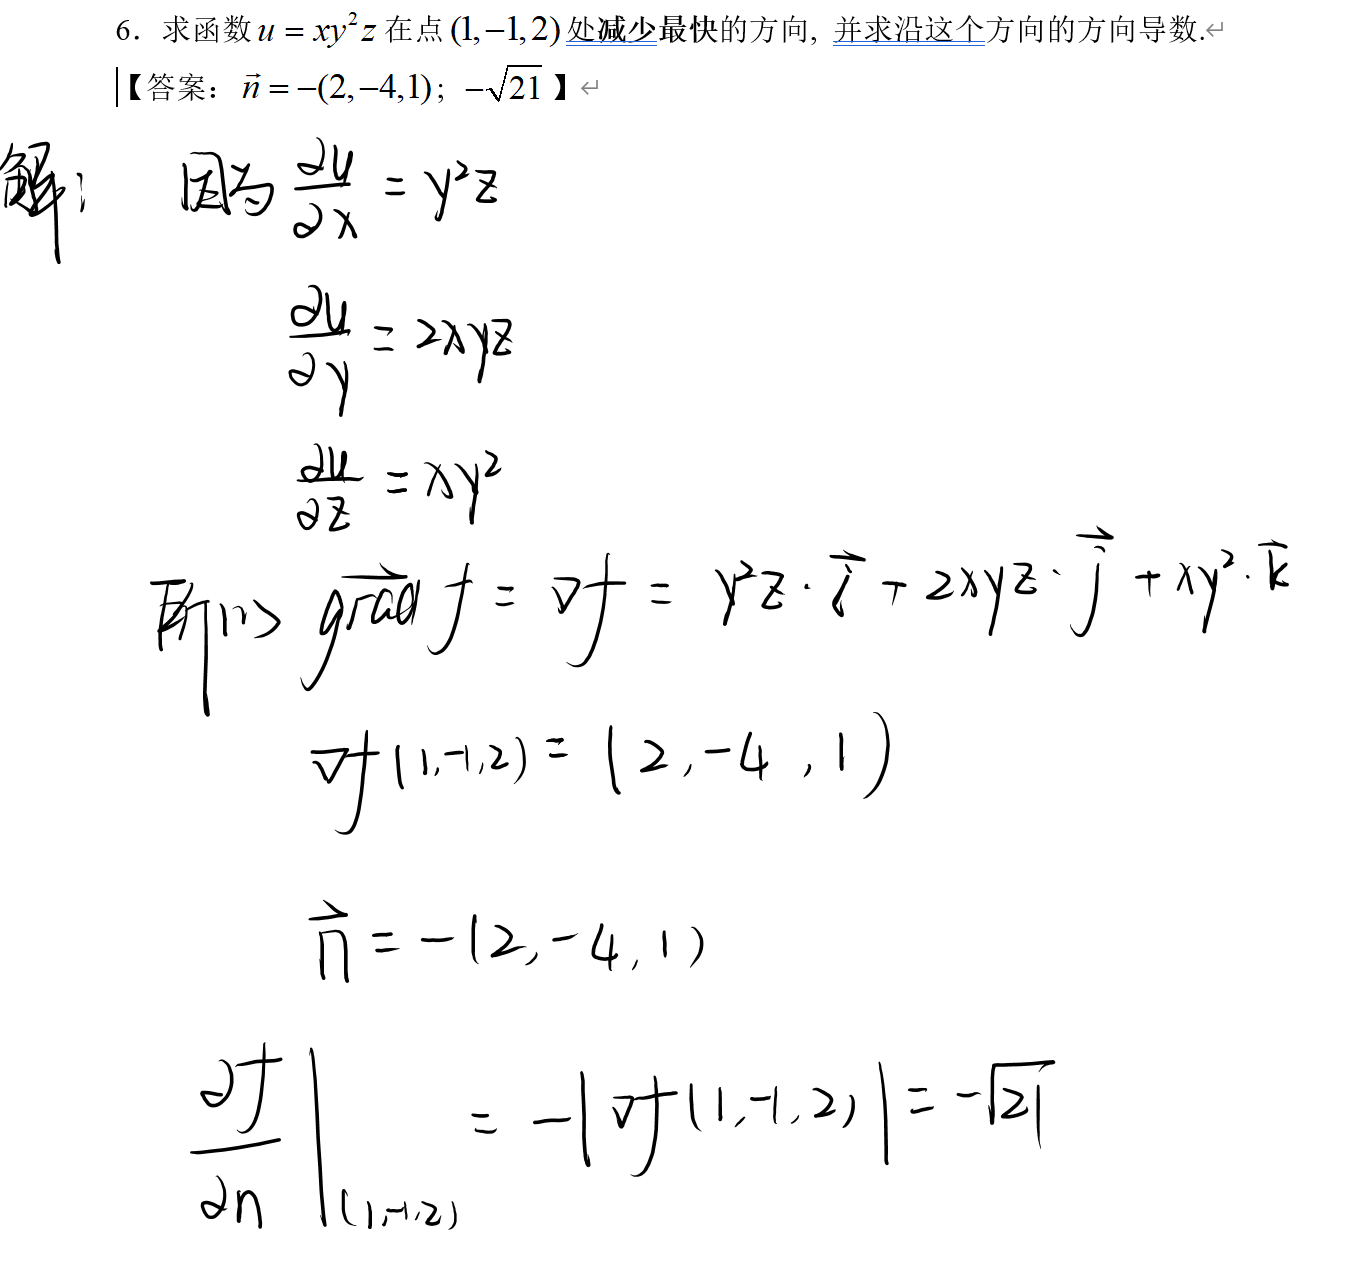 6. 求函数 u = xy²z 在点 (1,−1,2) 处减少最快的方向, 并求沿这个方向的方向导数.↵
【答案: n⃗ = −(2,−4,1); −√21 】↵
解: 因为 ∂u/∂x = y²z
∂u/∂y = 2xyz
∂u/∂z = xy²
所以 grad⃗ f = ∇f = y²z · i⃗ + 2xyz · j⃗ + xy² · k⃗
∇f(1,-1,2) = (2,-4,1)
n⃗ = -(2,-4,1)
∂f/∂n |(1,-1,2) = -|∇f(1,-1,2)| = -√21